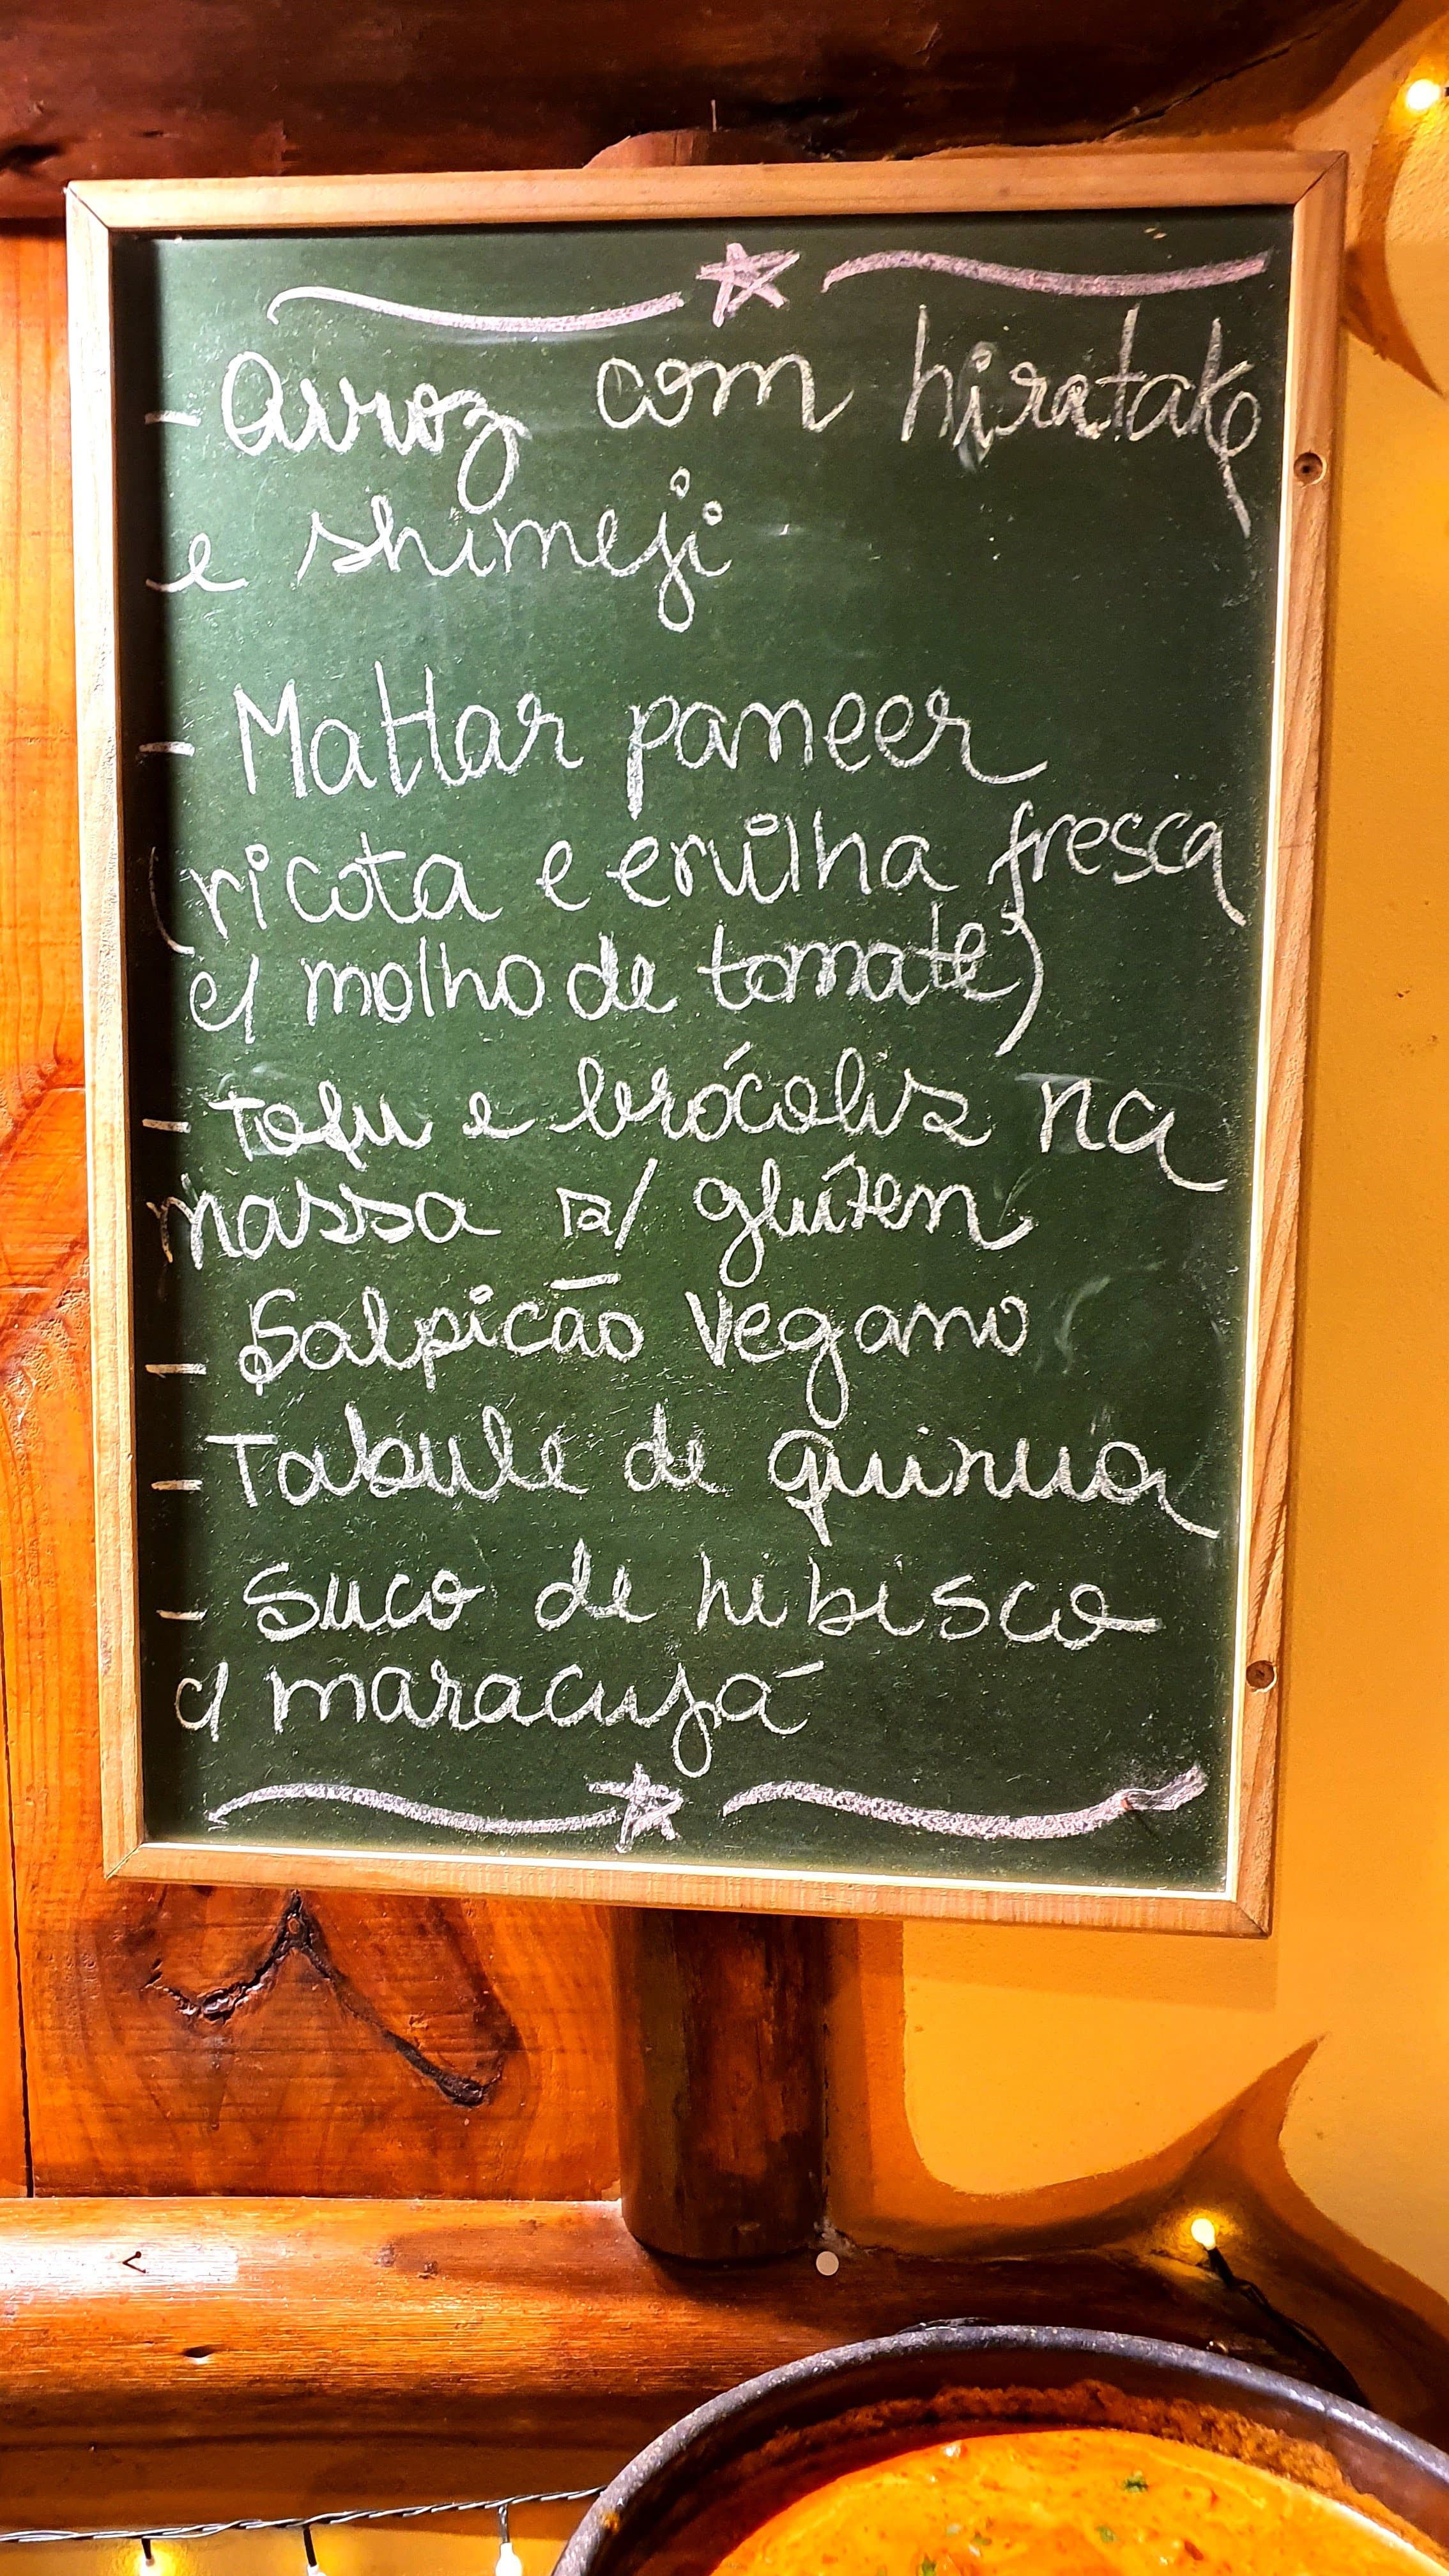 - Arroz com hiratake
e shimeji
- Mattar paneer
(ricota e ervilha fresca
c/ molho de tomate)
- Tofu e brócolis na
massa s/ glúten
- Salpicão vegano
- Tabule de quinua
- Suco de hibisco
c/ maracujá